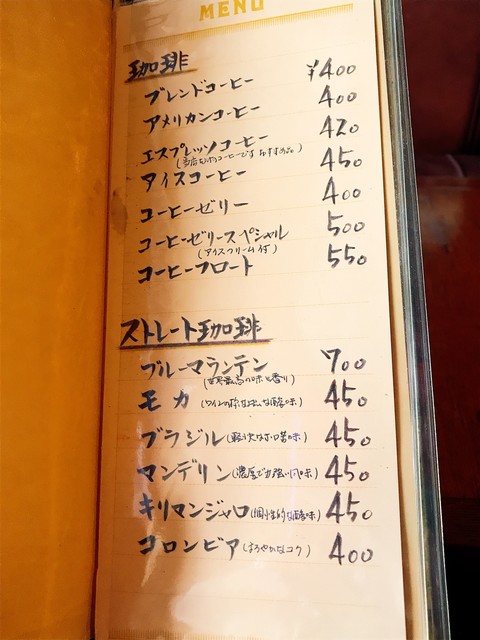 MENU
珈琲
ブレンドコーヒー ¥400
アメリカンコーヒー 400
エスプレッソコーヒー 420
アイスコーヒー 450
コーヒーゼリー 400
コーヒーゼリースペシャル 500
(アイスクリーム付)
コーヒーフロート 550
ストレート珈琲
ブルーマウンテン 700
(世界最高の味と香り)
モカ 450
ブラジル 450
マンデリン(濃厚で力強い風味) 450
キリマンジャロ(個性的な酸味) 450
コロンビア(まろやかなコク) 400